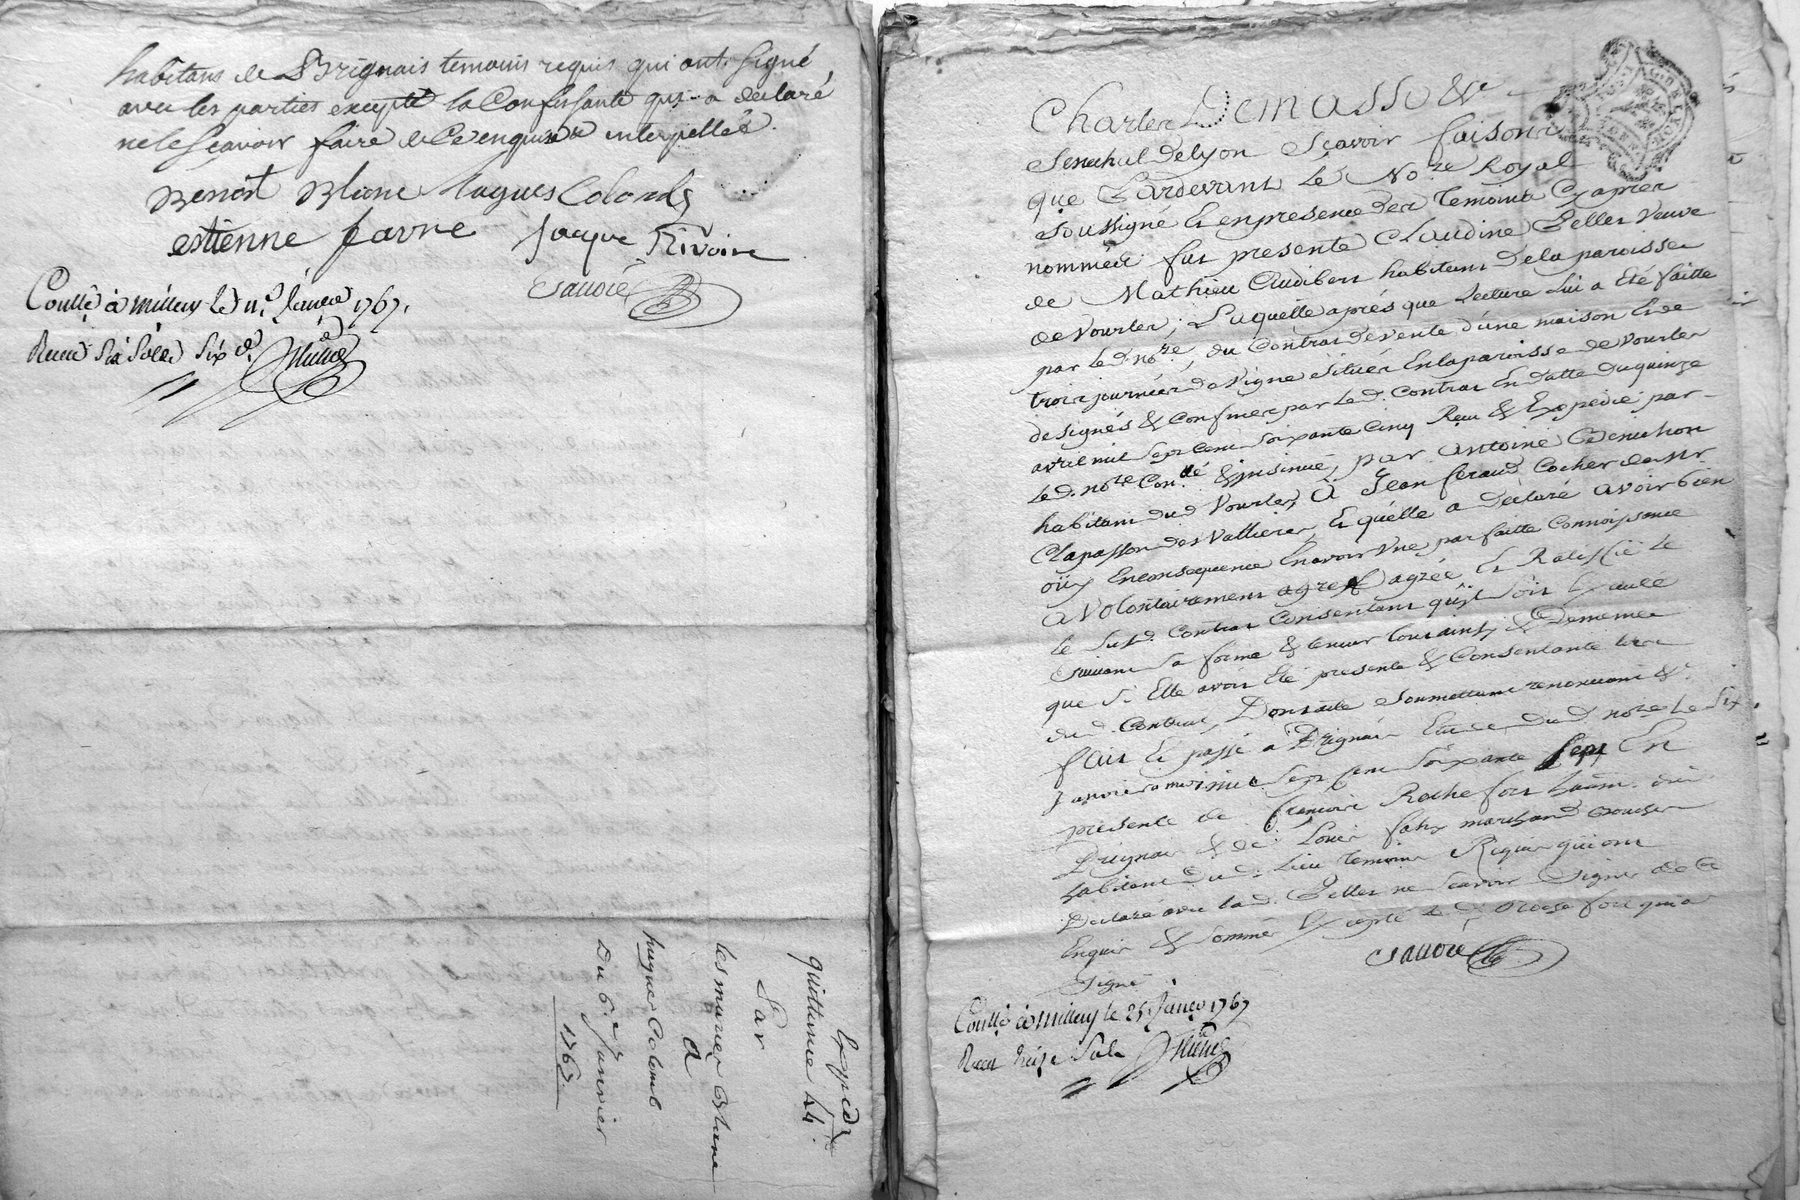 habitans de Brignais temoins requis qui ont signé
avec les parties excepté la Confessante qui a declaré
ne le scavoir faire de ce enquise & interpellée.
Benoit Blanc hugues Colomb
estienne favre Jacque Rivoire
Sauoié
Contlé à Millery le 11e Janvier 1767.
Recu six sols six d.
Expiedé
quittance 44.
Par
les mariez Blanc
a
hugues Colomb
Du 6e Janvier
1767
Charles Demasso &c
Senechal de Lyon Scavoir faisons
que Pardevant le Nore Royal
soussigné & en presence des Temoins Cy apres
nommés fut presente Claudine Pelles veuve
de Mathieu Audibert habitant de la paroisse
de Vourles; Laquelle aprés que Lecture lui a été faitte
par le d. nore, du Contrat de vente d'une maison & de
trois journées de Vigne située En la paroisse de Vourles
designés & Confinés par le d. Contrat En datte du quinze
avril mil sept cent soixante Cinq Recu & Expedié par
le d. nore Conlé & insinué, par antoine
habitant dud Vourles, à Jean feraud Cocher de Mr
Clapasson des Vallieres, & qu'elle a declaré avoir bien
oüy En consequence En avoir Une parfaitte Connoissance
a Volontairement agréé & Ratiffié le
le susd. Contrat Consentant qu'il soit Execute
suivant sa forme & teneur tout ainsi & De meme
que si Elle avoit Eté presente & Consentante lors
du d. Contrat, Dont acte soumettant renoncant &c
fait & passé a Brignais Etude du d. nore Le six
Janvier mil sept cent soixante sept En
presence de francois Rochefort
Brignais & de s. Louis fahy marchand
habitant du d. Lieu Temoins Requis qui ont
Declaré avec lad. Pelles ne Scavoir Signer de Ce
Enquis & sommé Excepté le d. Rochefort qui a
signé
Sauoié
Contlé à Millery le 25 Janvr 1767
Recu treize sols